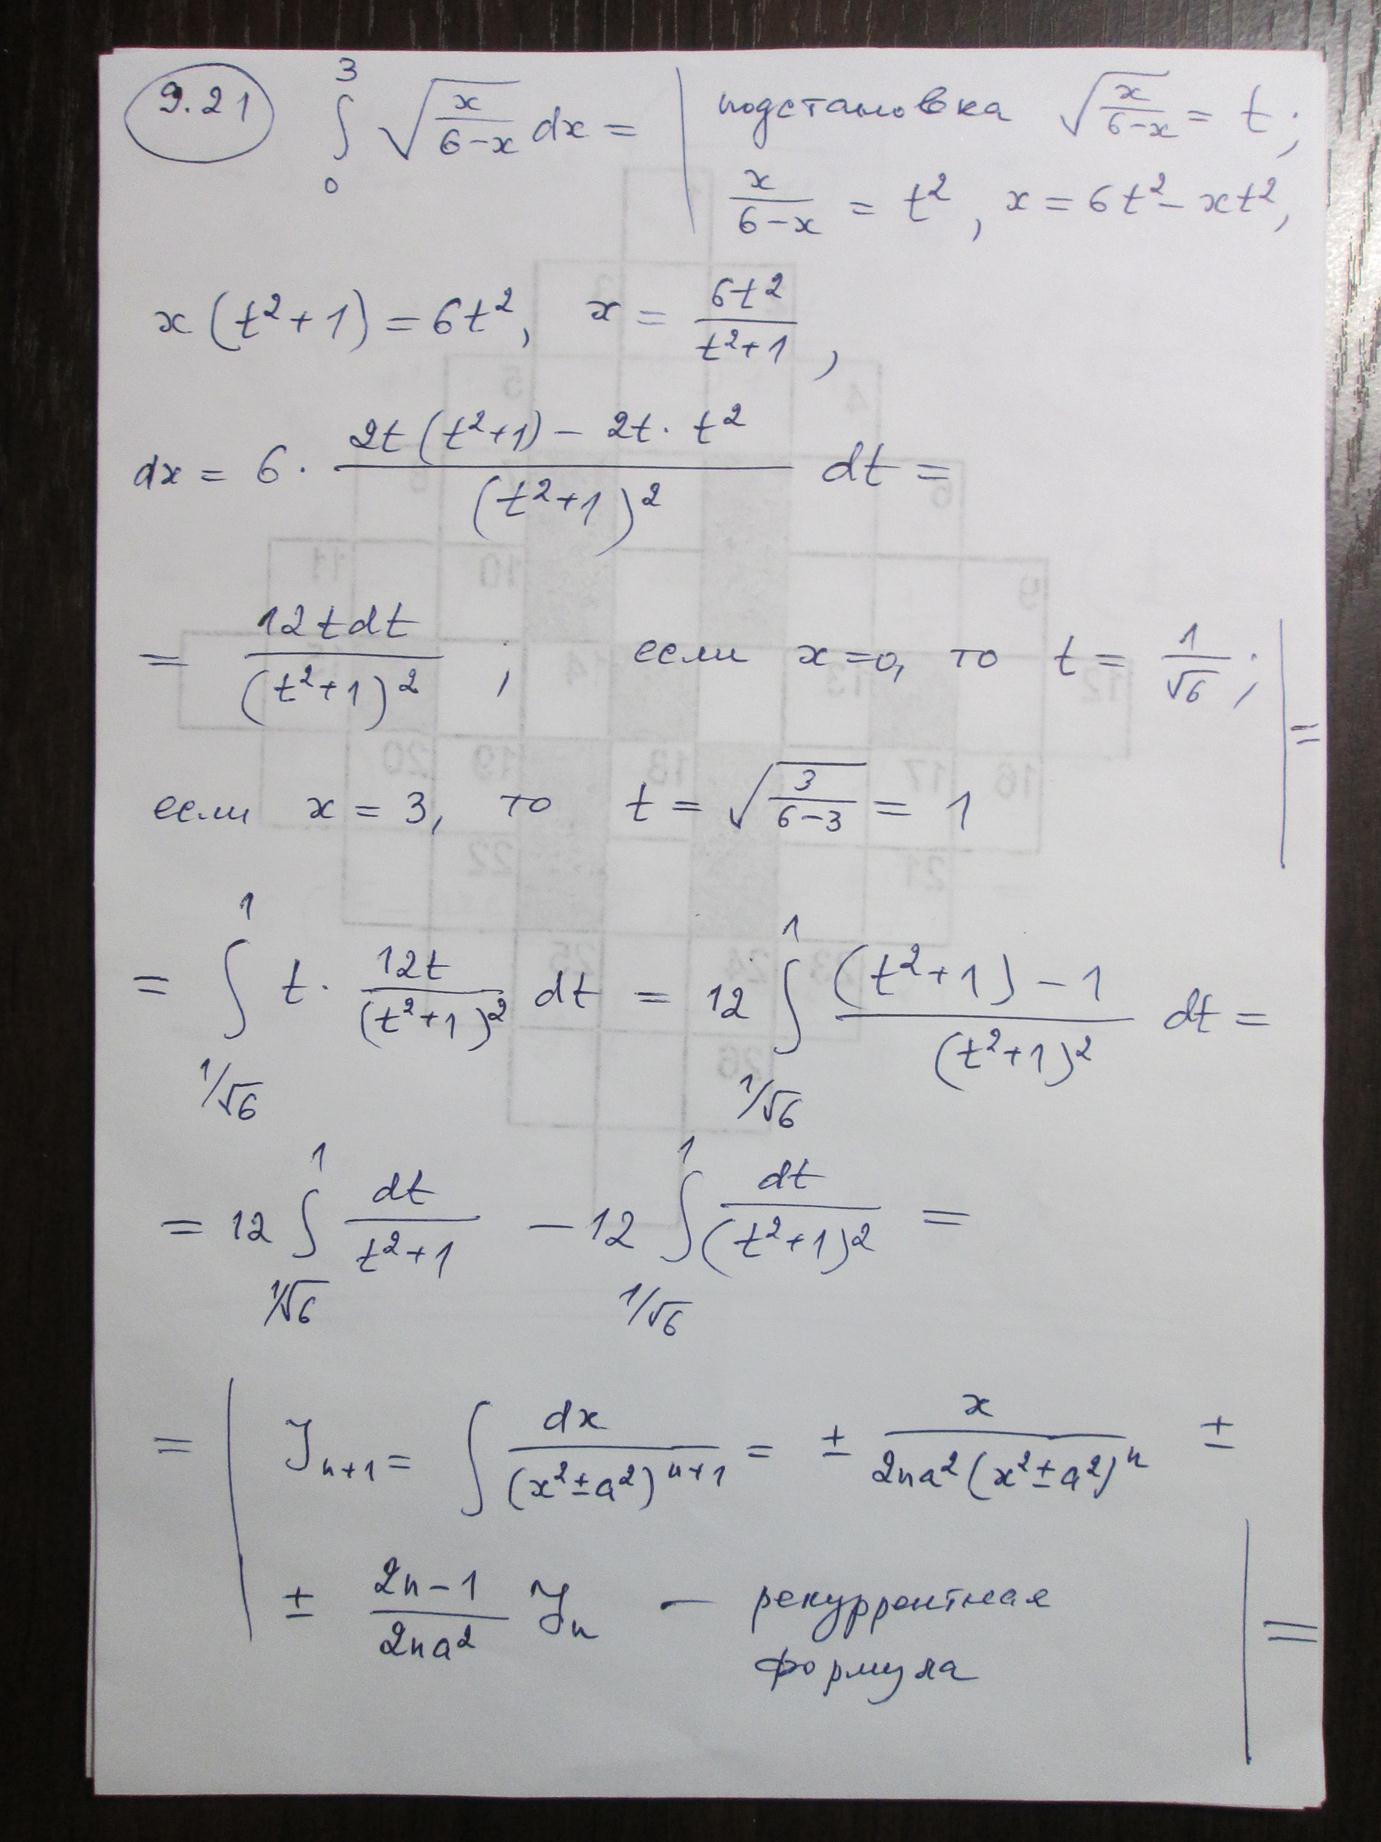 9.21 ∫₀³ √(x/(6-x)) dx = | подстановка √(x/(6-x)) = t;
x/(6-x) = t², x = 6t² - xt²,
x(t²+1) = 6t², x = 6t²/(t²+1),
dx = 6 · (2t(t²+1) - 2t · t²)/(t²+1)² dt =
= 12tdt/(t²+1)²; если x=0, то t = 1/√6; | =
если x = 3, то t = √(3/(6-3)) = 1
= ∫_{1/√6}^{1} t · 12t/(t²+1)² dt = 12 ∫_{1/√6}^{1} ((t²+1) - 1)/(t²+1)² dt =
= 12 ∫_{1/√6}^{1} dt/(t²+1) - 12 ∫_{1/√6}^{1} dt/(t²+1)² =
= | J_{n+1} = ∫ dx/(x²±a²)^{n+1} = ± x/(2na²(x²±a²)^n) ±
± (2n-1)/(2na²) J_n — рекуррентная | =
формула